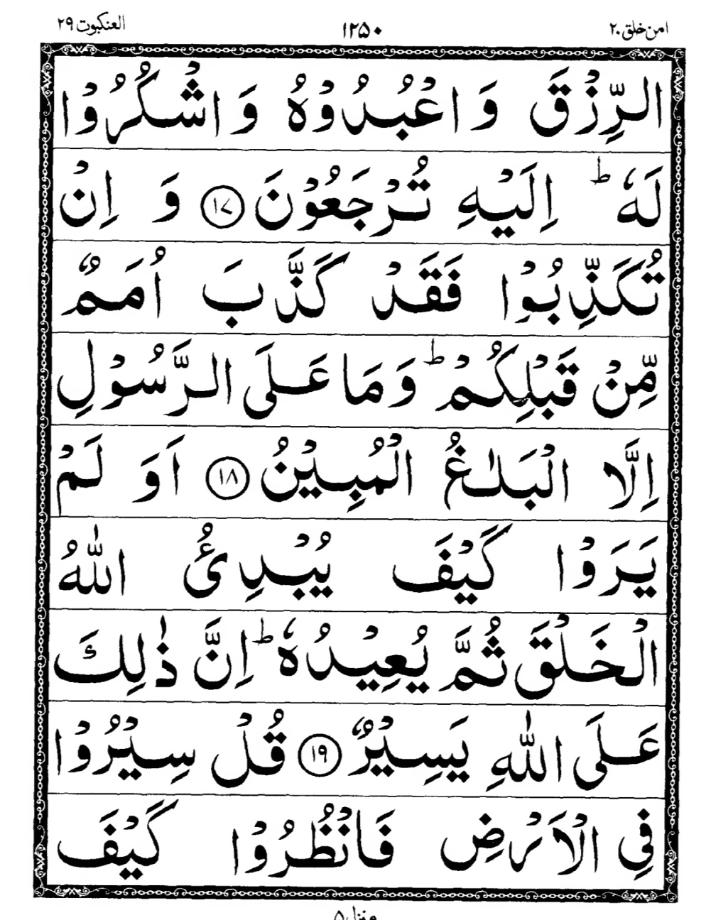 امن خلق ۲۰ ۱۲۵۰ العنكبوت ۲۹
الرِّزْقَ وَ اعْبُدُوْهُ وَ اشْكُرُوْا
لَهٗ ؕ اِلَيْهِ تُرْجَعُوْنَ ۝۱۷ وَ اِنْ
تُكَذِّبُوْا فَقَدْ كَذَّبَ اُمَمٌ
مِّنْ قَبْلِكُمْ ؕ وَمَا عَلَى الرَّسُوْلِ
اِلَّا الْبَلٰغُ الْمُبِيْنُ ۝۱۸ اَوَ لَمْ
يَرَوْا كَيْفَ يُبْدِئُ اللّٰهُ
الْخَلْقَ ثُمَّ يُعِيْدُهٗ ؕ اِنَّ ذٰلِكَ
عَلَى اللّٰهِ يَسِيْرٌ ۝۱۹ قُلْ سِيْرُوْا
فِي الْاَرْضِ فَانْظُرُوْا كَيْفَ
منزل ۵